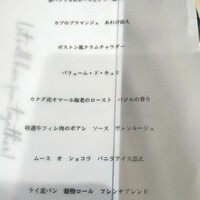 カブのブラマンジェ　あわび添え
ボストン風クラムチャウダー
パフューム・ド・キュリ
カナダ産オマール海老のロースト　バジルの香り
特選牛フィレ肉のポアレ　ソース　ヴァンルージュ
ムース　オ　ショコラ　バニラアイス添え
ライ麦パン　穀物ロール　フレンチブレンド